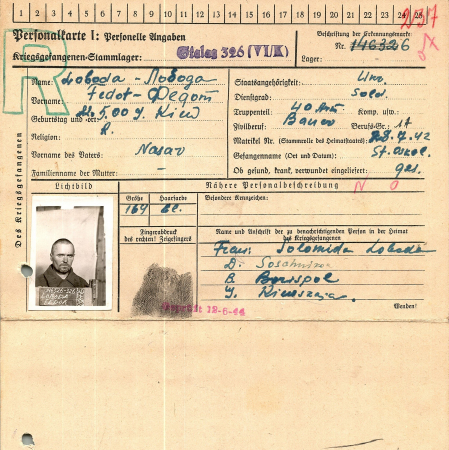 1 2 3 4 5 6 7 8 9 10 11 12 13 14 15 16 17 18 19 20 21 22 23 24 25
237
Personalkarte I: Personelle Angaben
Kriegsgefangenen-Stammlager: Stalag 326 (VI/K)
Beschriftung der Erkennungsmarke
Nr. 146326
Lager:
R
Des Kriegsgefangenen
Name: Loboda - Лобода
Vorname: Fedot - Федот
Geburtstag und -ort: 00 Kiew
Religion: R.
Vorname des Vaters: Nasar
Familienname der Mutter: -
Staatsangehörigkeit: Ukr.
Dienstgrad: Sold.
Truppenteil: Komp. usw.
Zivilberuf: Bauer Berufs-Gr.: 17
Matrikel Nr. (Stammrolle des Heimatstaates): 7.42
Gefangennahme (Ort und Datum): St. Oskol.
Ob gesund, krank, verwundet eingeliefert: ges.
Lichtbild
Nähere Personalbeschreibung
N O
Größe
Haarfarbe
Besondere Kennzeichen:
164
Bl.
Fingerabdruck
des rechten! Zeigefingers
Name und Anschrift der zu benachrichtigenden Person in der Heimat
des Kriegsgefangenen
Frau: Solomida Loboda
D.
B. Borispol
G. Kiewskaja
12-6-44
Wenden!